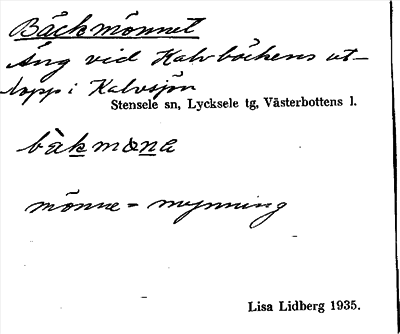 Bäckmönnet
Äng vid Kalvbäckens ut-
lopp i Kalvsjön
Stensele sn, Lycksele tg, Västerbottens l.
mönne = mynning
Lisa Lidberg 1935.